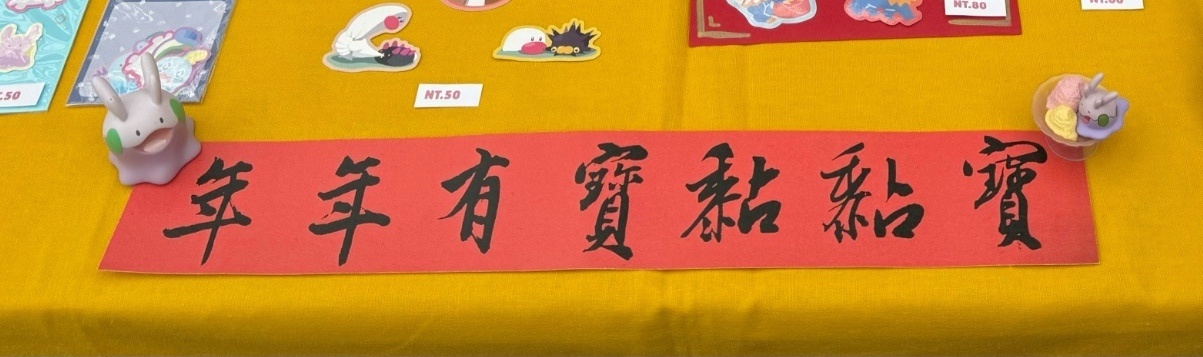 NT.80
.50
NT.50
年年有寶黏黏寶